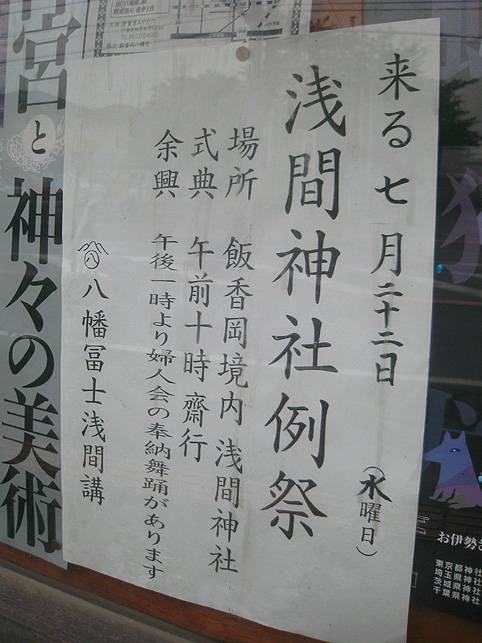 来る七月二十二日（水曜日）
浅間神社例祭
場所　飯香岡境内　浅間神社
式典　午前十時　齋行
余興　午後一時より婦人会の奉納舞踊があります
八幡冨士浅間講
宮と神々の美術
お伊勢さ
東京都神社
埼玉県神社
茨城県神社
千葉県神社